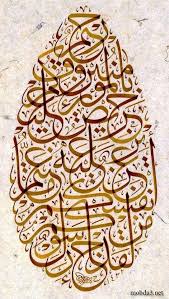 لقد جاءكم رسول
من أنفسكم
عزيز عليه ما عنتم
حريص عليكم
بالمؤمنين رءوف
رحيم
mobda3.net